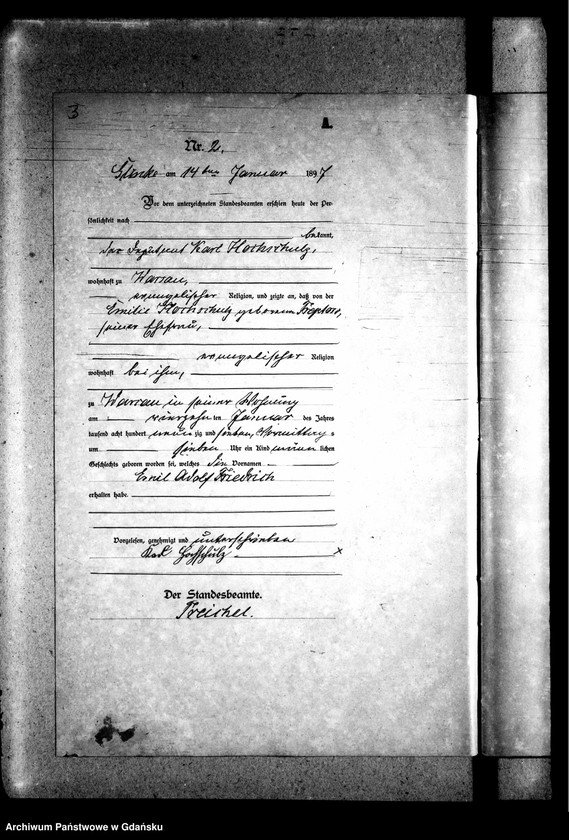 3
Nr. 2.
am 14ten Januar 1897
Vor dem unterzeichneten Standesbeamten erschien heute der Per-
sönlichkeit nach
bekannt,
der Karl Hochschulz,
wohnhaft zu Warsau,
evangelischer Religion, und zeigte an, daß von der
Emilie Hochschulz geborenen
seiner Ehefrau,
evangelischer Religion
wohnhaft bei ihm,
zu Warsau in seiner Wohnung
am vierzehn ten Januar des Jahres
tausend acht hundert neun zig und sieben, Vormittags
um sieben Uhr ein Kind männ lichen
Geschlechts geboren worden sei, welches die Vornamen
Emil Adolf Friedrich
erhalten habe.
Vorgelesen, genehmigt und unterschrieben
Karl Hochschulz
Der Standesbeamte.
Archiwum Państwowe w Gdańsku